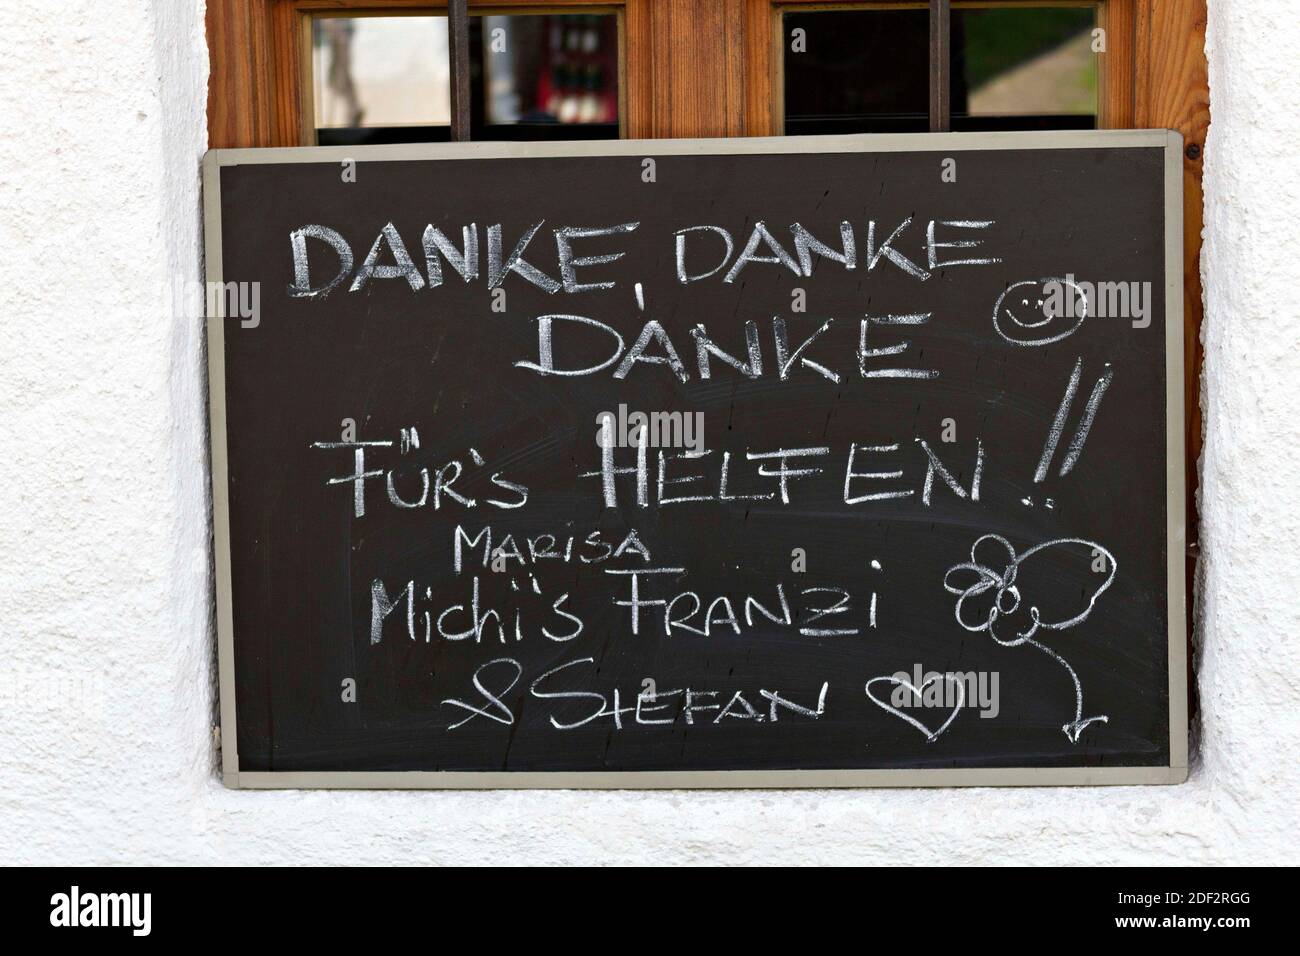 DANKE, DANKE
DANKE
FÜR's HELFEN !!
MARISA
Michi's FRANZi
& STEFAN
alamy
Image ID: 2DF2RGG
www.alamy.com